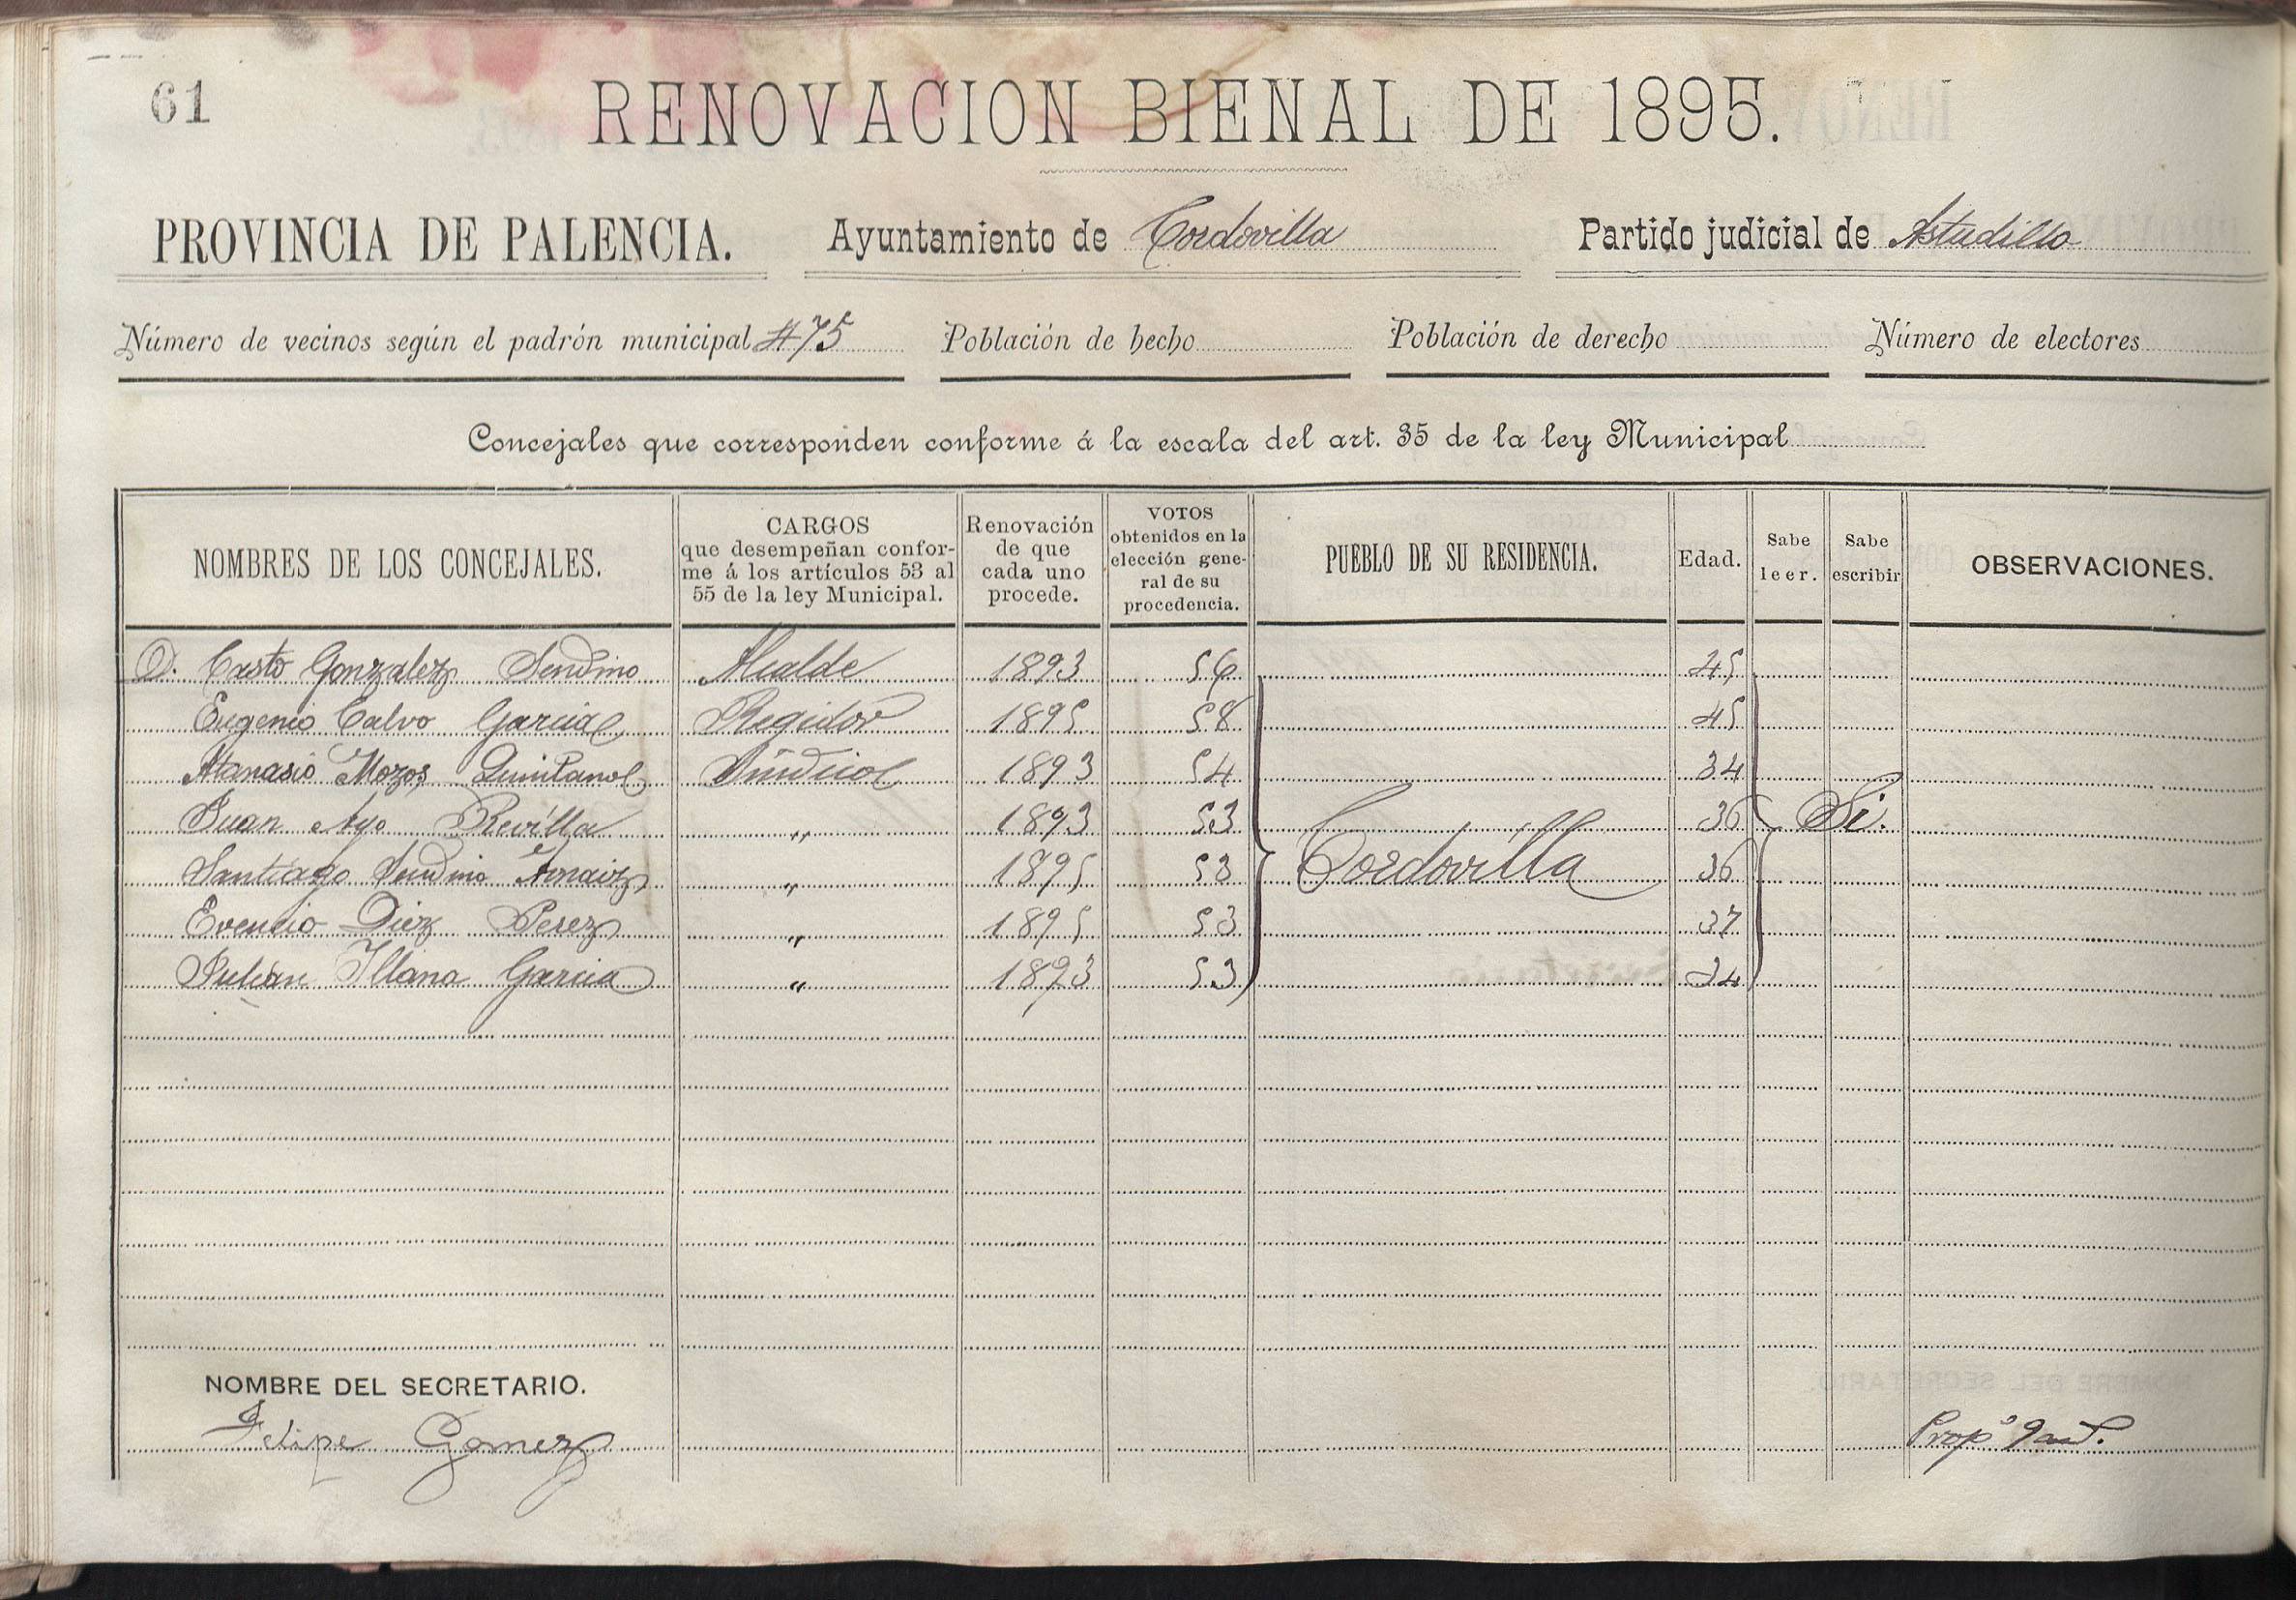 61
RENOVACION BIENAL DE 1895.
PROVINCIA DE PALENCIA. Ayuntamiento de Cordovilla Partido judicial de Astudillo
Número de vecinos según el padrón municipal 475 Población de hecho Población de derecho Número de electores
Concejales que corresponden conforme á la escala del art. 35 de la ley Municipal
NOMBRES DE LOS CONCEJALES.
CARGOS
que desempeñan confor-
me á los artículos 53 al
55 de la ley Municipal.
Renovación
de que
cada uno
procede.
VOTOS
obtenidos en la
elección gene-
ral de su
procedencia.
PUEBLO DE SU RESIDENCIA.
Edad.
Sabe
leer.
Sabe
escribir
OBSERVACIONES.
D. Casto Gonzalez Sendino Alcalde 1893 56 45
Eugenio Calvo Garcia Regidor 1895 58 45
Atanasio Mozos Quintana Síndico 1893 54 34
Juan Ayo Revilla " 1893 53 36 Si.
Santiago Sendino Arnaiz " 1895 53 Cordovilla 36
Evencio Diez Perez " 1895 53 37
Julian Illana Garcia " 1893 53 34
NOMBRE DEL SECRETARIO.
Felipe Gomez